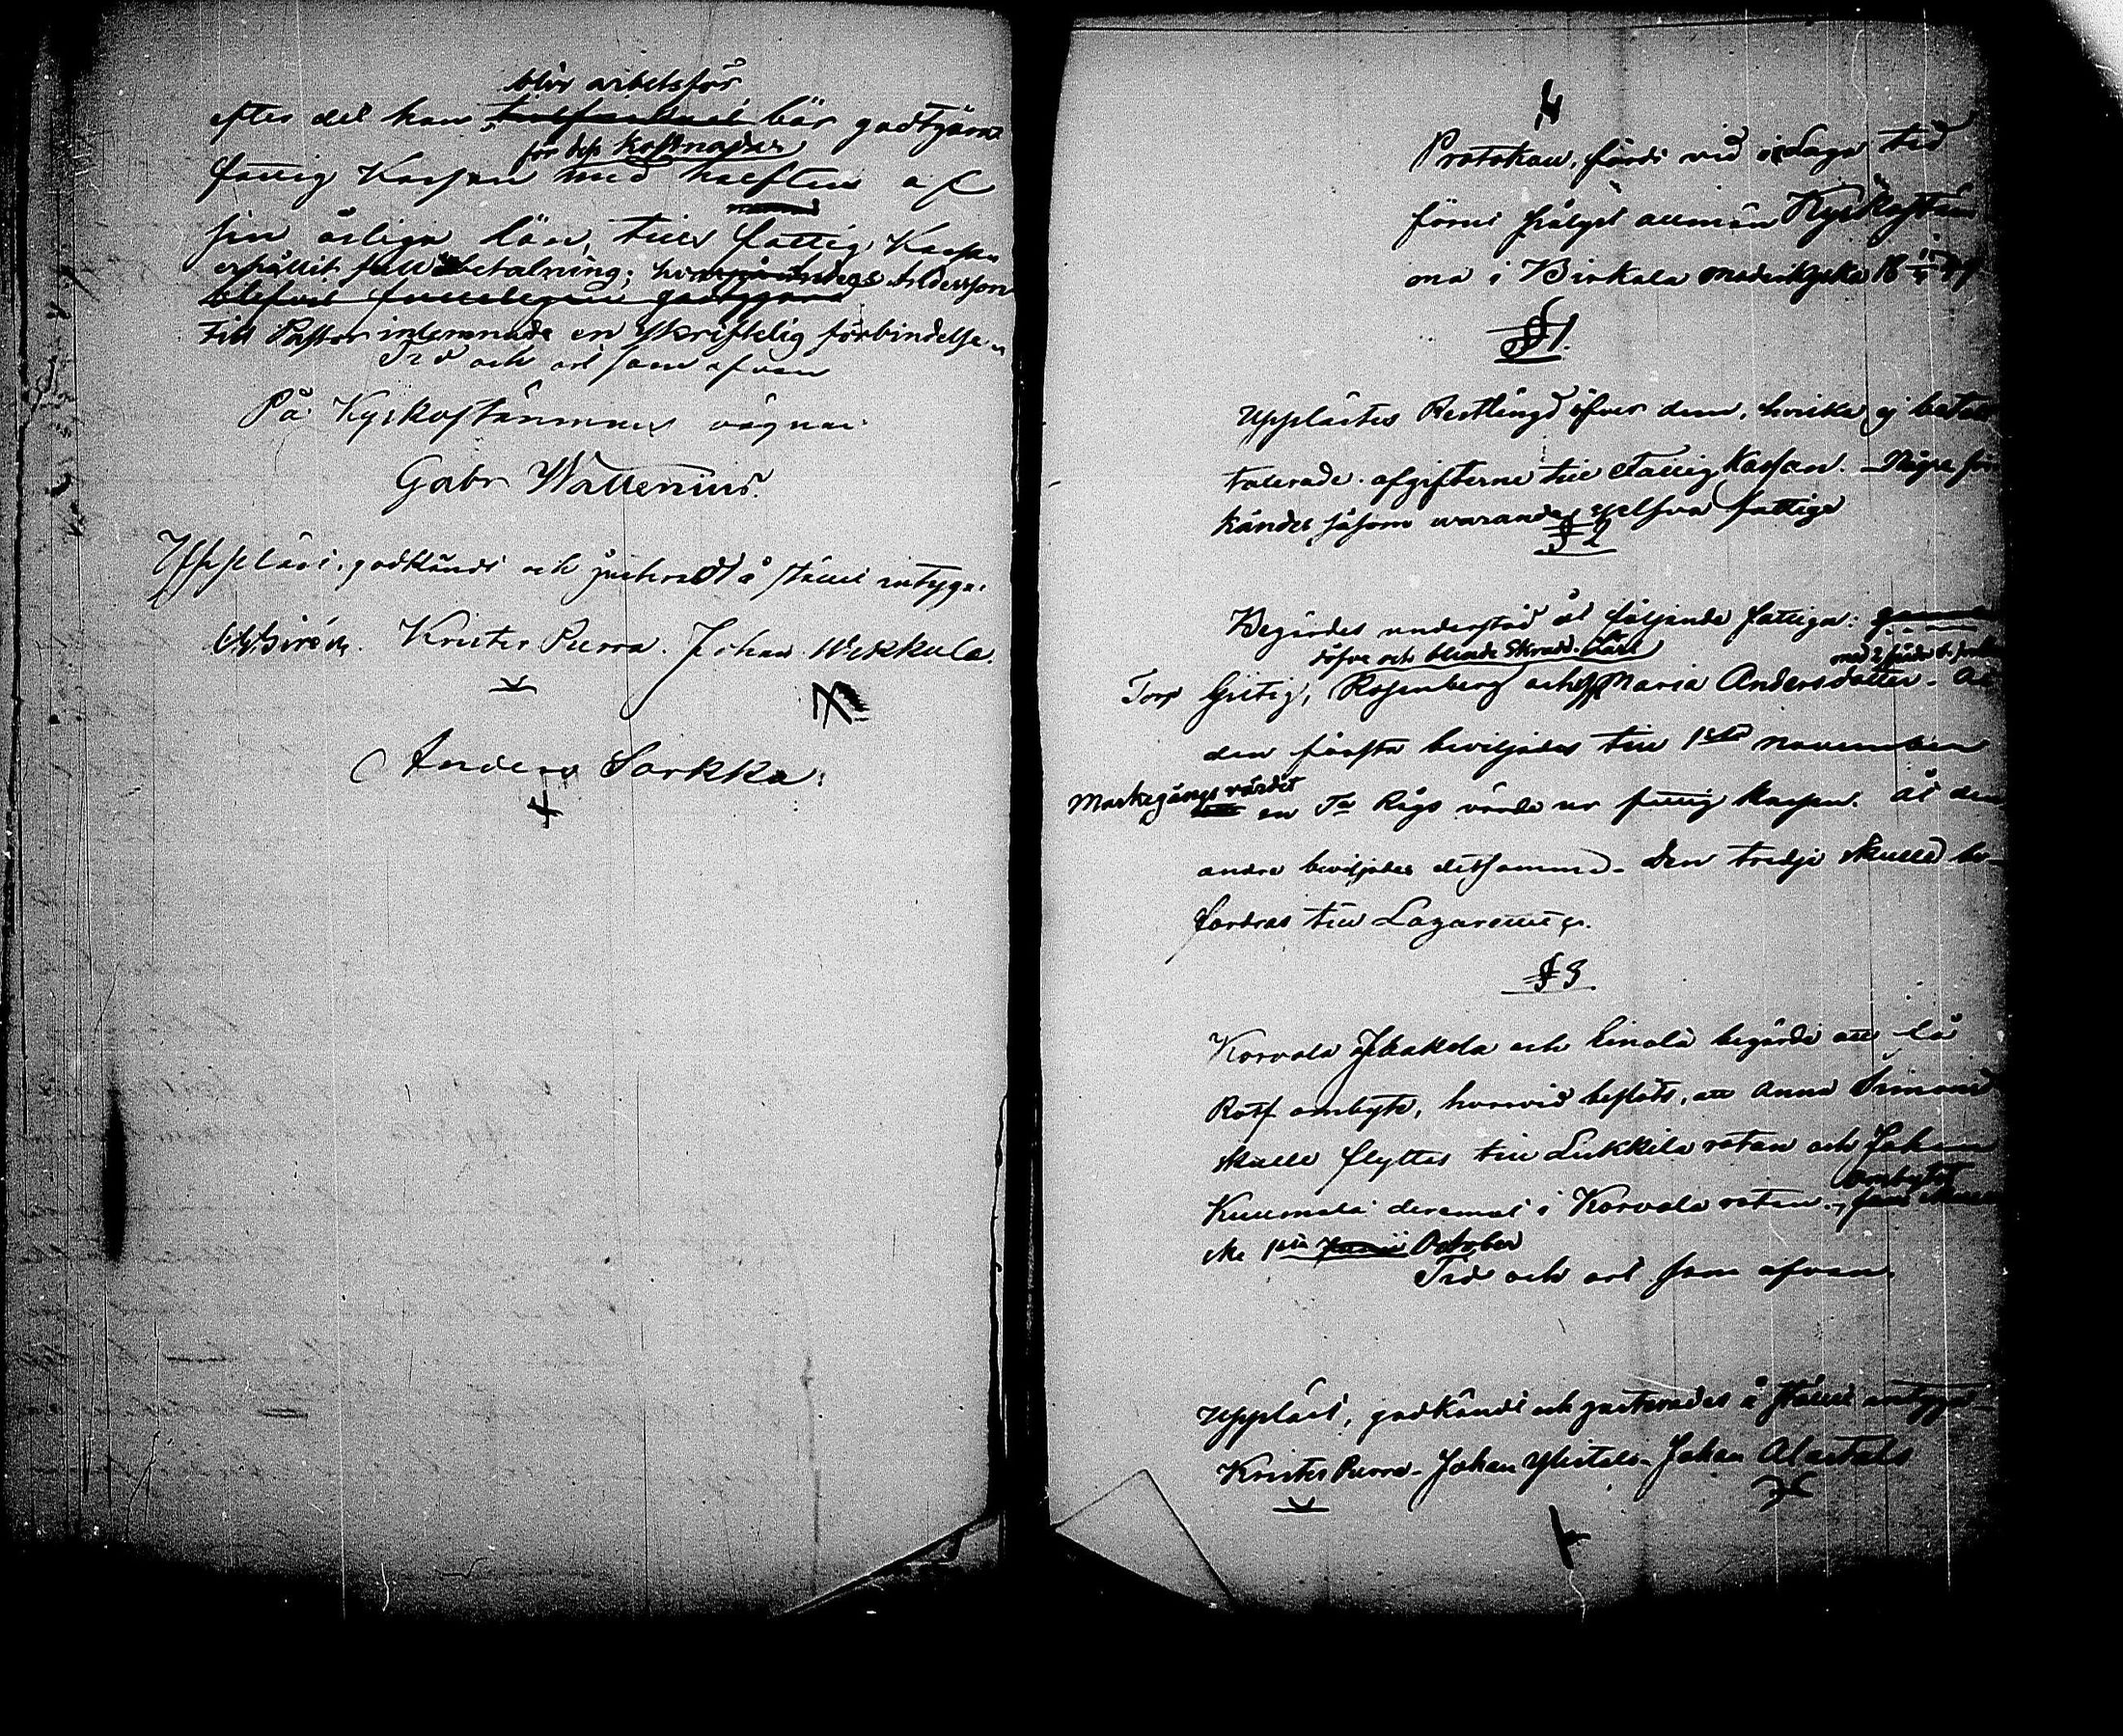 blir arbetsför
efter det han bör godtgöra
för dess kostnader
fattig Kassan med hälften af
sin årliga lön, tills fattig Kassan
erhållit full betalning; Andersson
till Pastor inlemnade en skriftelig förbindelse
Tid och ort som ofvan
På Kyrkostämmans vägnar
Gabr Wallenius.
Uppläst, godkändt och justeradt å stället intyga.
Krister Purra. Johan Wekkula.
Anders Sorkka.
Protokoll, fördt vid i laga tid
förut pålyst allmän Kyrkostäm
ma i Birkala moderkyrka 18
§ 1.
Upplästes Restlängd öfver dem, hvilka ej betalt
afgifterne till Fattig Kassan. Några för
kändes såsom warande sjelfva fattige
§ 2
Begärdes understöd åt följande fattiga:
döfve och blinde Skradd. Carl
Torp Giltig, Rosenberg och Maria Andersdotter. Åt
den första beviljades till 1sta november
Markegångs värdet
en Ta Rågs värde ur fattig kassan. Åt den
andra beviljades detsamma. Den tredje skulle be-
fordras till Lazarettet.
§ 3
Korvola och Einola begärde att få
Rotf ombyte, hvarvid beslöts, att Anna Simons
skulle flyttas till Lukkila rotan och Johan
Kuumola deremot i Korvola rotan.
ombytet
ske 1sta October
Tid och ort som ofvan
Uppläst, godkändt och justerades å stället intyga
Krister Purra. Johan Ylistalo. Johan Alastalo